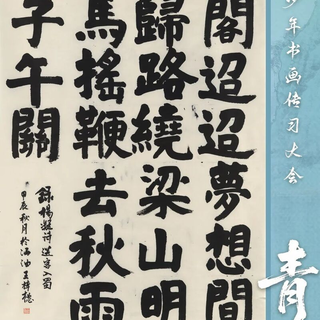 閣迢迢夢想間
歸路繞梁山明
馬搖鞭去秋雨
子午關
錄楊凝詩送客入蜀
甲辰秋月於
少年书画传习大会
青